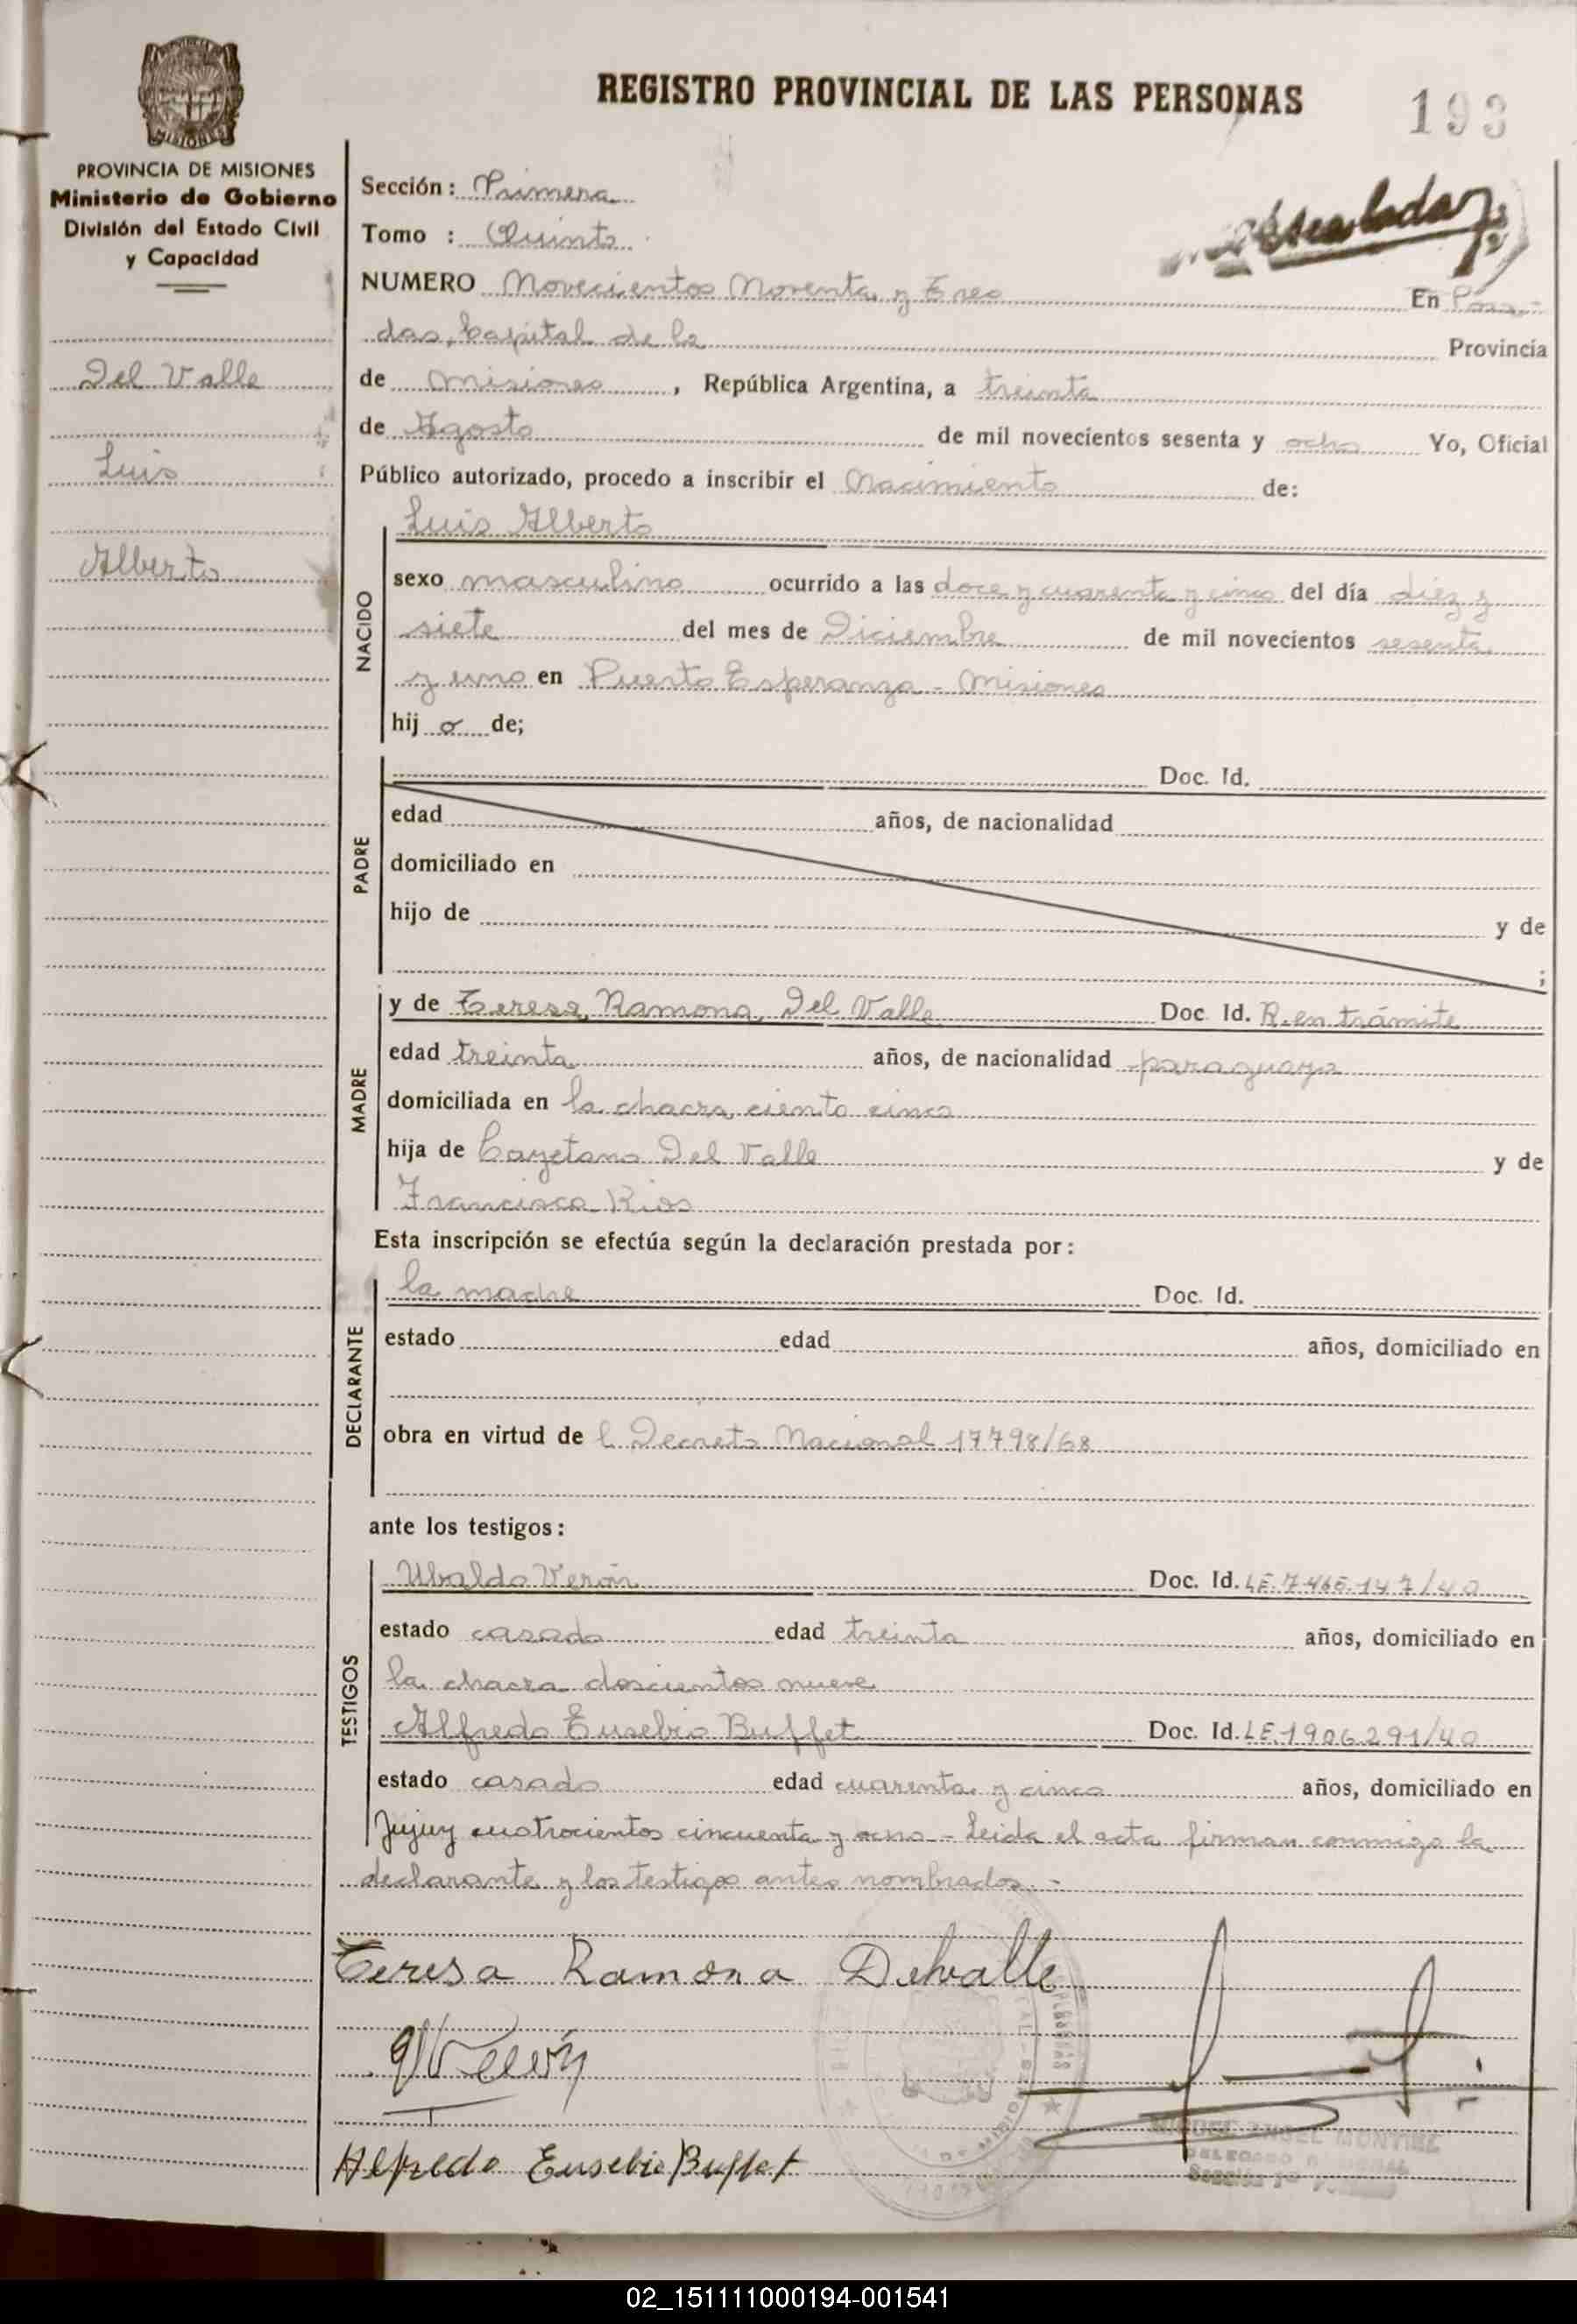 REGISTRO PROVINCIAL DE LAS PERSONAS
193
MISIONES
PROVINCIA DE MISIONES
Ministerio de Gobierno
División del Estado Civil
y Capacidad
Del Valle
Luis
Alberto
Sección: Primera
Tomo : Quinto
NUMERO Novecientos Noventa y Tres En Posa-
das, Capital de la Provincia
de Misiones, República Argentina, a treinta
de Agosto de mil novecientos sesenta y ocho Yo, Oficial
Público autorizado, procedo a inscribir el Nacimiento de:
Luis Alberto
NACIDO
sexo masculino ocurrido a las doce y cuarenta y cinco del día diéz y
siete del mes de Diciembre de mil novecientos sesenta
y uno en Puerto Esperanza - Misiones
hij o de;
PADRE
Doc. Id.
edad años, de nacionalidad
domiciliado en
hijo de y de
;
MADRE
y de Teresa Ramona Del Valle Doc. Id. R. en trámite
edad treinta años, de nacionalidad paraguaya
domiciliada en la chacra ciento cinco
hija de Cayetano Del Valle y de
Francisca Rios
Esta inscripción se efectúa según la declaración prestada por:
DECLARANTE
la madre Doc. Id.
estado edad años, domiciliado en
obra en virtud de l Decreto Nacional 17798/68
ante los testigos:
TESTIGOS
Ubaldo Verón Doc. Id. LE.7.465.147/40
estado casado edad treinta años, domiciliado en
la chacra doscientos nueve
Alfredo Eusebio Buffet Doc. Id. LE.1906.291/40
estado casado edad cuarenta y cinco años, domiciliado en
Jujuy cuatrocientos cincuenta y ocho - Leida el acta firman conmigo la
declarante y los testigos antes nombrados. -
Teresa Ramona Delvalle
Verón
Alfredo Eusebio Buffet
MIGUEL ANGEL MONTIEL
DELEGADO
Sección 1ª
02_151111000194-001541